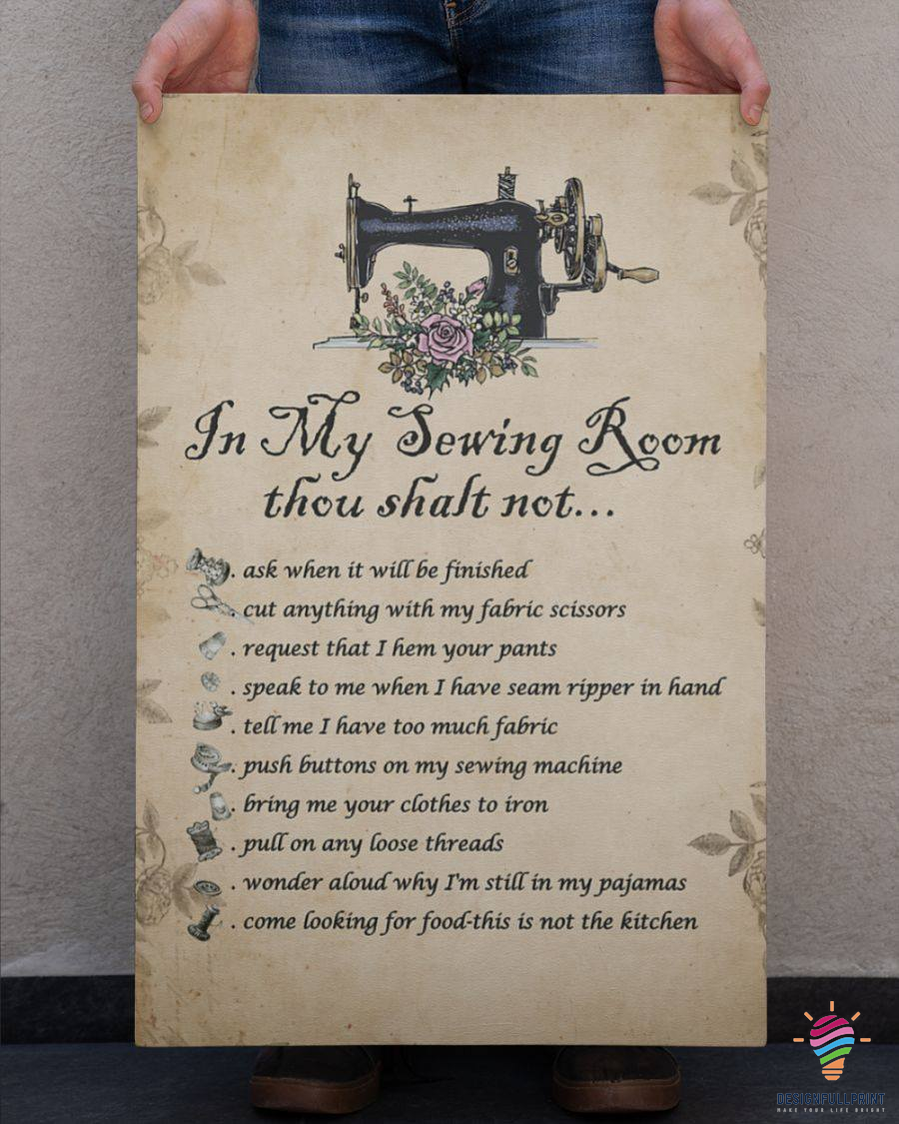 In My Sewing Room
thou shalt not...
. ask when it will be finished
cut anything with my fabric scissors
. request that I hem your pants
. speak to me when I have seam ripper in hand
. tell me I have too much fabric
. push buttons on my sewing machine
. bring me your clothes to iron
. pull on any loose threads
. wonder aloud why I'm still in my pajamas
. come looking for food-this is not the kitchen
DESIGNFULLPRINT
MAKE YOUR LIFE BRIGHT